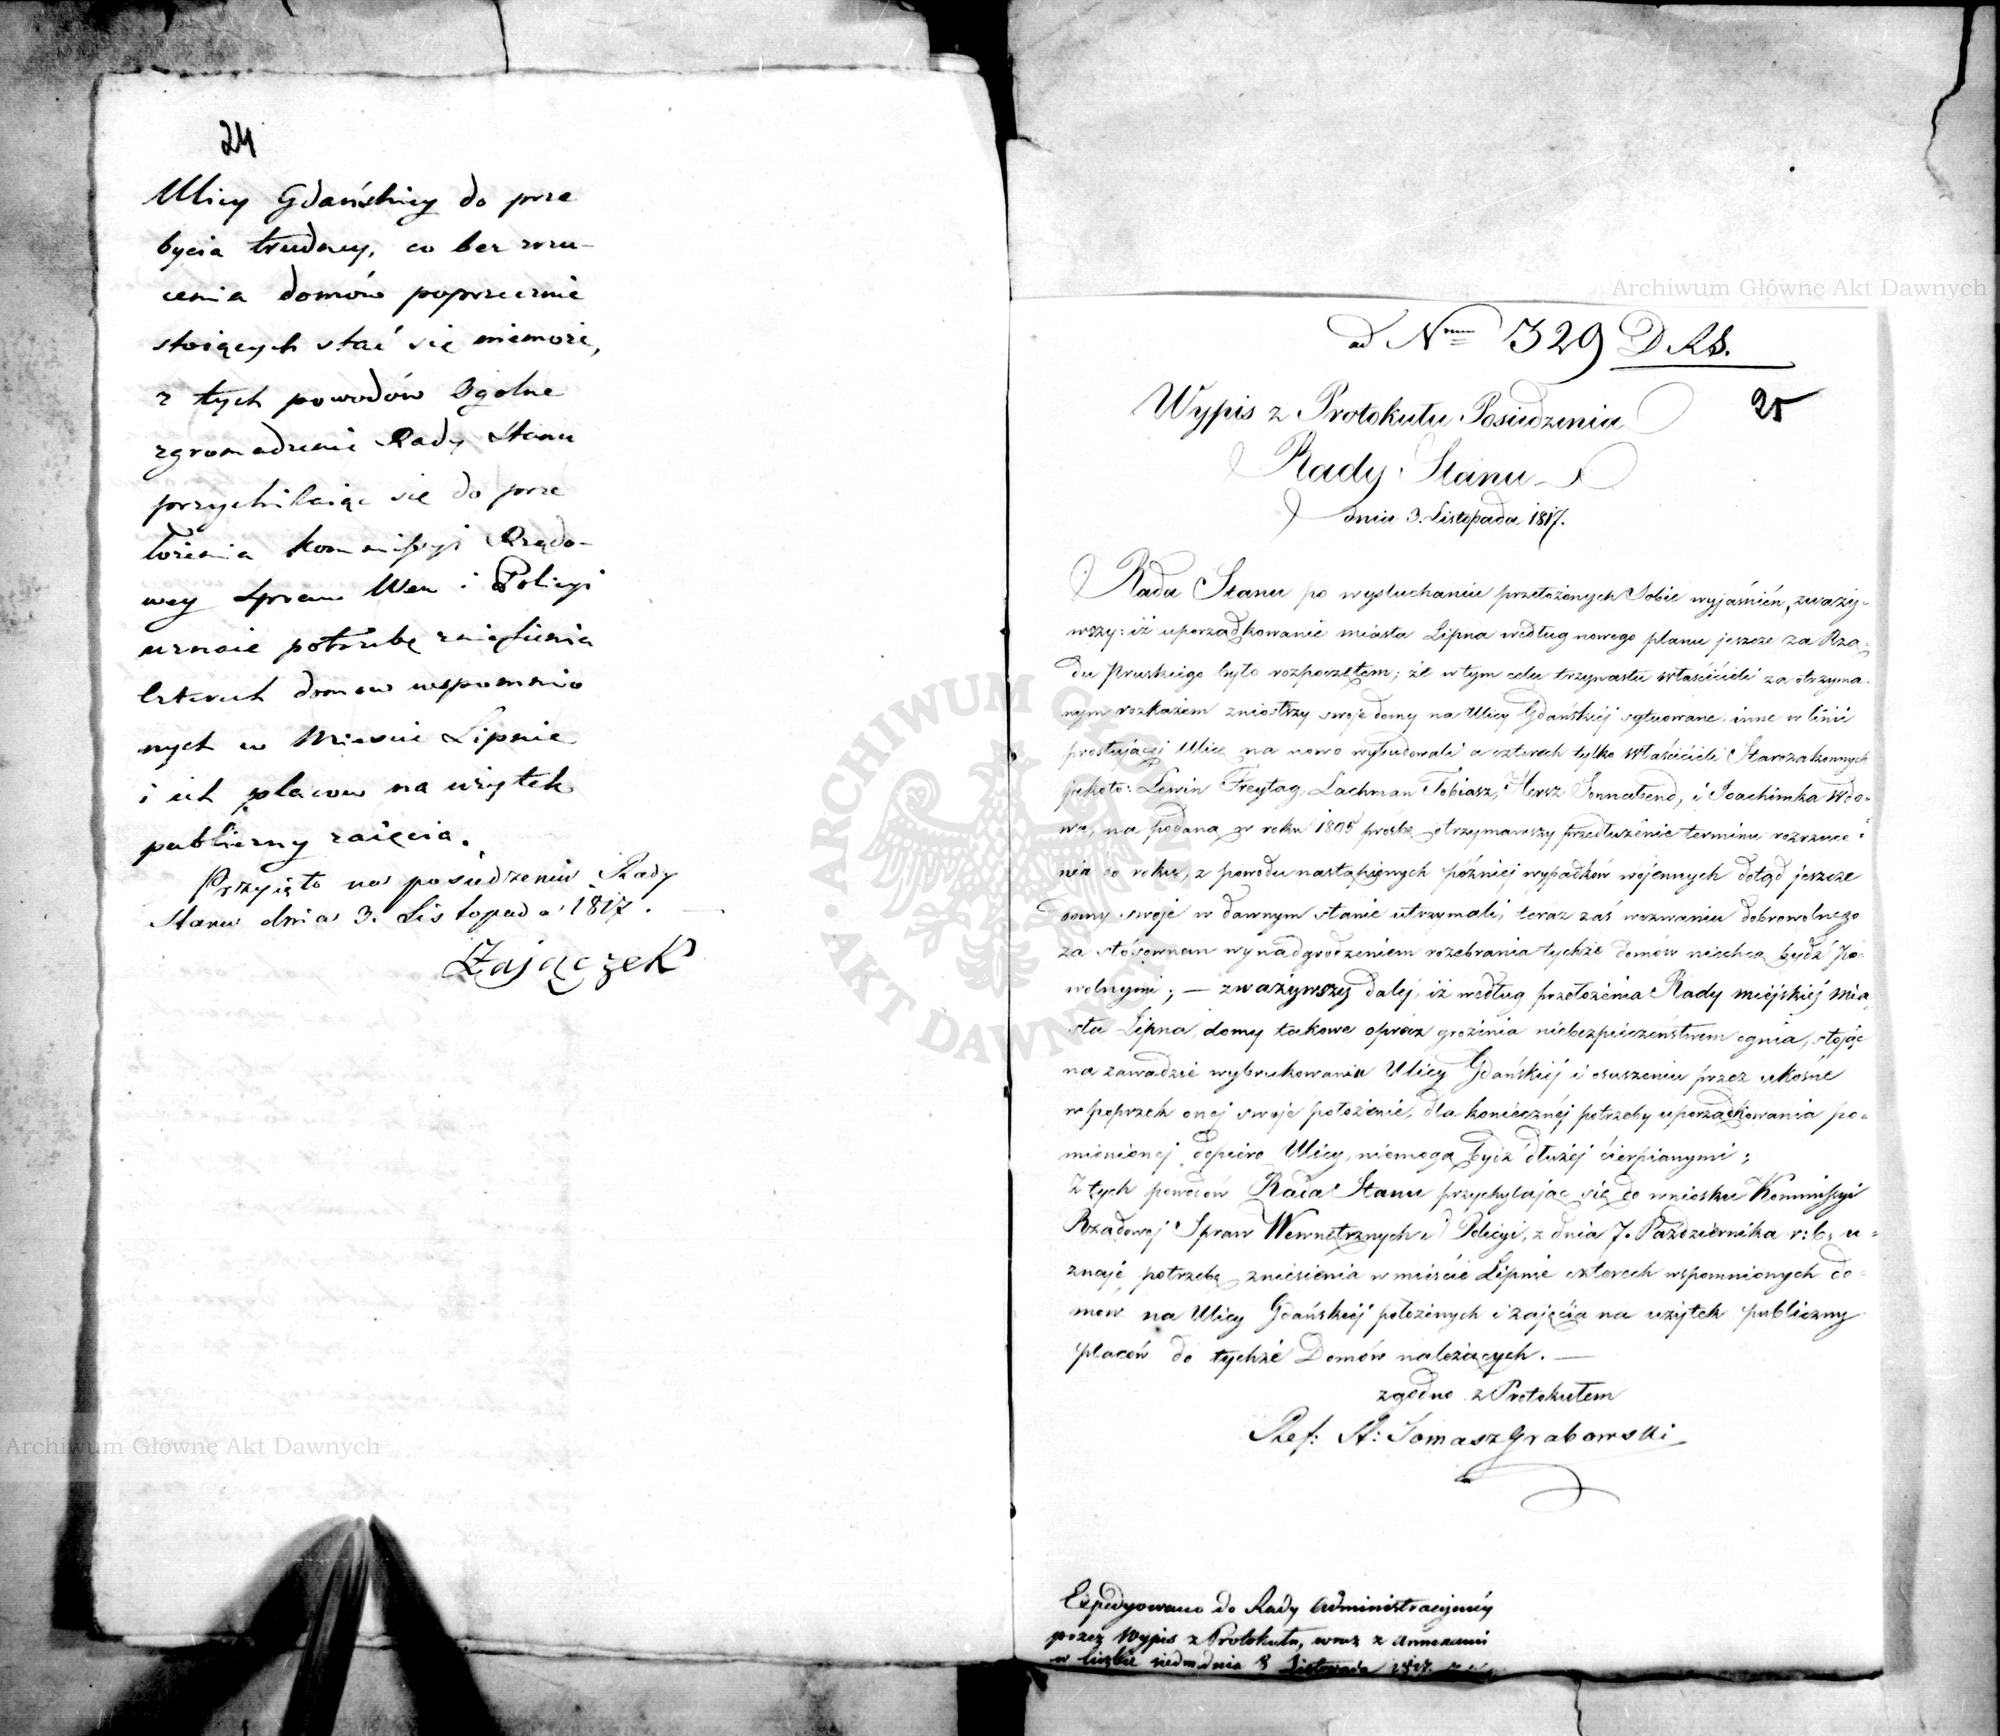 24
Ulicy Gdańskiey do prze
bycia trudney, co bez zrzu-
cenia domów poprzecznie
stoiących stać się niemoże,
z tych powodów Ogólne
zgromadzenie Rady Stanu
przychilaiąc się do prze
łożenia Kommissyi Rządo-
wey Spraw Wew i Policyi
uznaie potrzebę zniesienia
czterech domow wspomnio
nych w Mieście Lipnie
i ich placow na użytek
publiczny zaięcia.
Przyięto na posiedzeniu Rady
Stanu dnia 3. Listopada 1817. —
Zajączek
ad Nrum 329 D.R.S.
25
Wypis z Protokułu Posiedzenia
Rady Stanu
dnia 3. Listopada 1817.
Rada Stanu po wysłuchaniu przełożonych Sobie wyjaśnień, zważy-
wszy: iż uporządkowanie miasta Lipna według nowego planu jeszcze za Rzą-
du Pruskiego było rozpoczętem; że w tym celu trzynastu właścicieli za otrzyma-
nym rozkazem zniosłszy swoje domy na Ulicy Gdańskiéj sytuowane, inne w linii
prostującéj Ulicę na nowo wybudowali a czterech tylko właścicieli Starozakonnych
jakoto: Lewin Freytag, Lachman Tobiasz, Hersz Sonnabend, i Joachimka Wdo-
wa, na podaną w roku 1805 prosbę otrzymawszy przedłużenie terminu rozrzuce-
nia do roku, z powodu nastąpionych później wypadków wojennych dotąd jeszcze
domy swoje w dawnym stanie utrzymali, teraz zaś wezwaniu dobrowolnego
za stósownem wynadgrodzeniem rozebrania tychże domów niechcą bydź po-
wolnymi; — zważywszy daléj, iż według przełożenia Rady miéjskiéj mia-
sta Lipna, domy takowe oprócz grożenia niebezpieczeństwem ognia, stojąc
na zawadzie wybrukowaniu Ulicy Gdańskiéj i osuszeniu przez ukośne
w poprzek onej swoje położenie, dla koniecznéj potrzeby uporządkowania po-
mienionéj dopiero Ulicy, niemogą bydź dłużéj cierpianymi;
Z tych powodów Rada Stanu przychylając się do wniosku Kommissyi
Rządowéj Spraw Wewnętrznych i Policyi, z dnia 7. Października r: b: u-
znaje potrzebę zniesienia w mieście Lipnie czterech wspomnionych do-
mow na Ulicy Gdańskiéj położonych i zajęcia na użytek publiczny
placów do tychże Domów należących. —
zgodno z Protokułem
Ref: St: Tomasz Grabowski
Expedyowano do Rady Administracyjnéy
przez Wypis z Protokułu, wraz z annexami
w liczbie siedm dnia 8 Listopada 1817.
Archiwum Główne Akt Dawnych
Archiwum Główne Akt Dawnych
ARCHIWUM GŁÓWNE AKT DAWNYCH